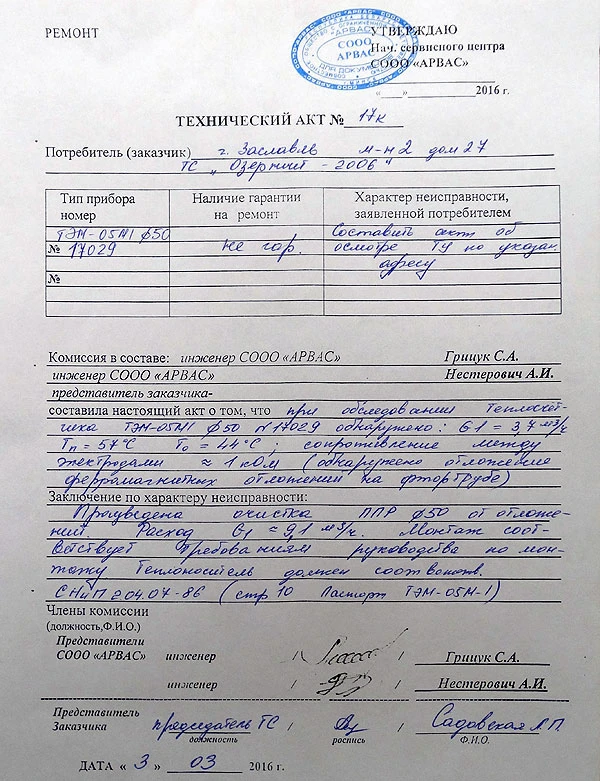 РЕМОНТ
УТВЕРЖДАЮ
Нач. сервисного центра
СООО «АРВАС»
"АРВАС"
СООО
АРВАС
"___"__________2016 г.
ТЕХНИЧЕСКИЙ АКТ № 17к
Потребитель (заказчик) г. Заславль м-н 2 дом 27
ТС "Озерный - 2006"
Тип прибора номер
Наличие гарантии на ремонт
Характер неисправности, заявленной потребителем
ТЭМ-05М1 ф50
№ 17029
не гар.
Составить акт об
осмотре ТУ по указан.
адресу
№
Комиссия в составе: инженер СООО «АРВАС» Грицук С.А.
инженер СООО «АРВАС» Нестерович А.И.
представитель заказчика-
составила настоящий акт о том, что при обследовании теплосчет-
чика ТЭМ-05М1 ф50 №17029 обнаружено: G1 = 3,7 м3/ч
Тп = 57°С То = 44°С ; сопротивление между
электродами ≈ 1 кОм (обнаружено отложение
ферромагнитных отложений на фтортрубе)
Заключение по характеру неисправности:
Произведена очистка ППР ф50 от отложе-
ний. Расход G1 ≈ 9,1 м3/ч. Монтаж соот-
ветствует требованиям руководства по мон-
тажу Теплоноситель должен соответств.
СНиП 2.04.07-86 (стр 10 Паспорт ТЭМ-05М-1)
Члены комиссии
(должность,Ф.И.О.)
Представители
СООО «АРВАС» инженер / / Грицук С.А.
инженер / / Нестерович А.И.
Представитель
Заказчика председатель ТС / / Садовская Л.П.
должность роспись Ф.И.О.
ДАТА « 3 » 03 2016 г.